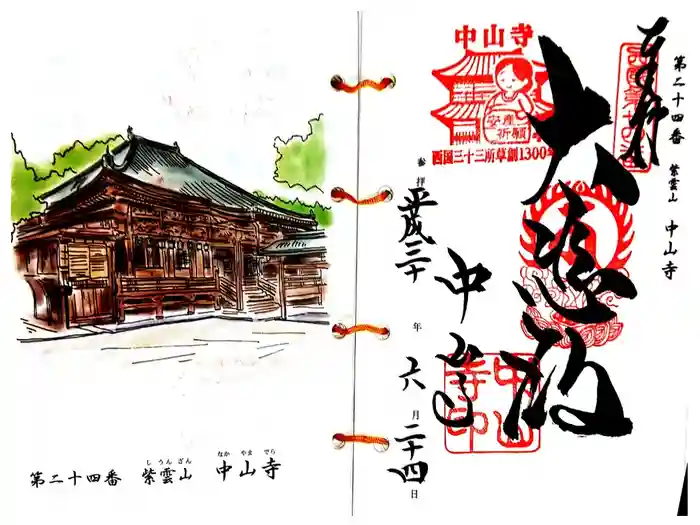 第二十四番 紫雲山 中山寺
しうんざん なかやまでら
第二十四番 紫雲山 中山寺
奉拝
大悲殿
中山寺
参拝 平成三十年六月二十四日
中山寺
安産祈願
西国三十三所草創1300年
中山寺印